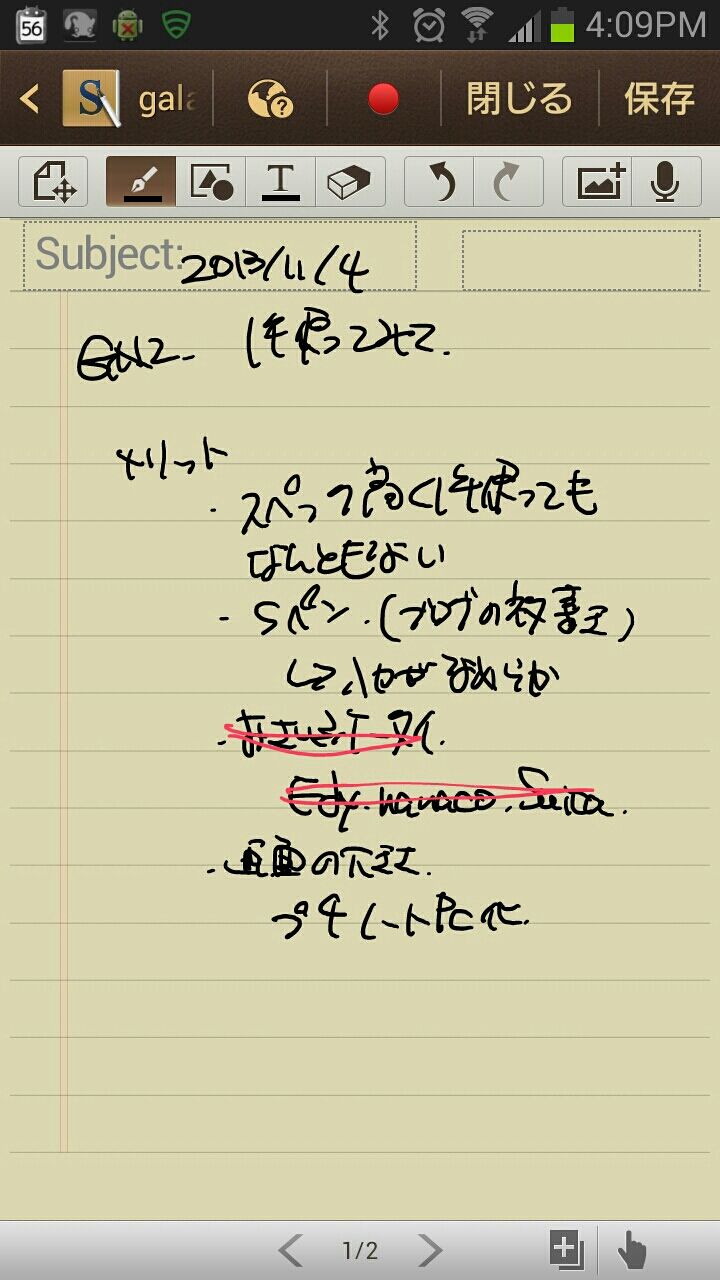 56
4:09PM
gala
閉じる
保存
T
Subject:
2013/11/4
GN2. 1年使ってみて.
メリット
・スペック高く1年使っても
なんともよい
・Sペン.(ブログの
が なめらか
・おさいふケータイ.
Edy.nanaco.Suica.
・画面の大きさ.
プチノートPC化.
1/2